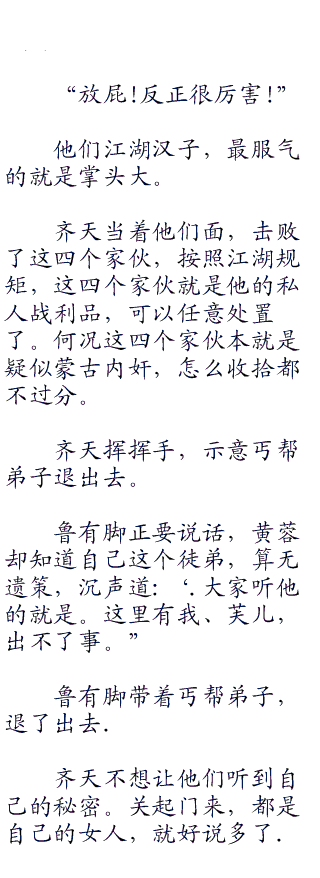 “放屁!反正很厉害!”
他们江湖汉子，最服气
的就是掌头大。
齐天当着他们面，击败
了这四个家伙，按照江湖规
矩，这四个家伙就是他的私
人战利品，可以任意处置
了。何况这四个家伙本就是
疑似蒙古内奸，怎么收拾都
不过分。
齐天挥挥手，示意丐帮
弟子退出去。
鲁有脚正要说话，黄蓉
却知道自己这个徒弟，算无
遗策，沉声道:‘.大家听他
的就是。这里有我、芙儿，
出不了事。”
鲁有脚带着丐帮弟子，
退了出去.
齐天不想让他们听到自
己的秘密。关起门来，都是
自己的女人，就好说多了.